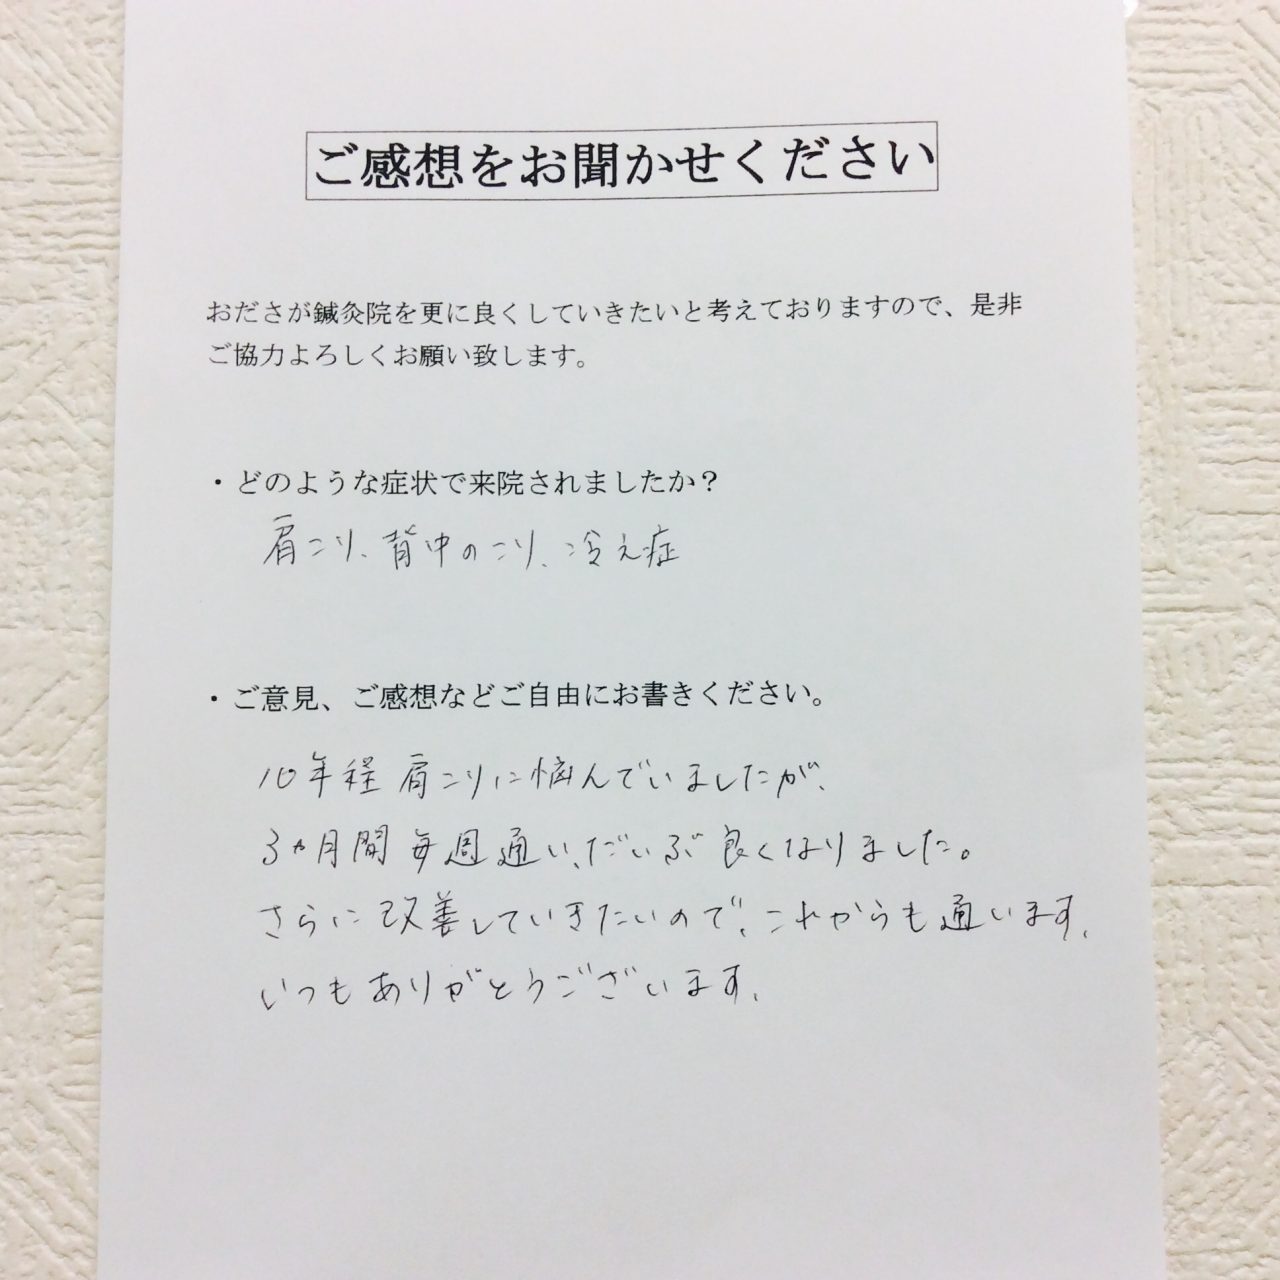 ご感想をお聞かせください
おださが鍼灸院を更に良くしていきたいと考えておりますので、是非
ご協力よろしくお願い致します。
・どのような症状で来院されましたか？
肩こり、背中のこり、冷え症
・ご意見、ご感想などご自由にお書きください。
10年程肩こりに悩んでいましたが、
3ヵ月間毎週通い、だいぶ良くなりました。
さらに改善していきたいので、これからも通います。
いつもありがとうございます。